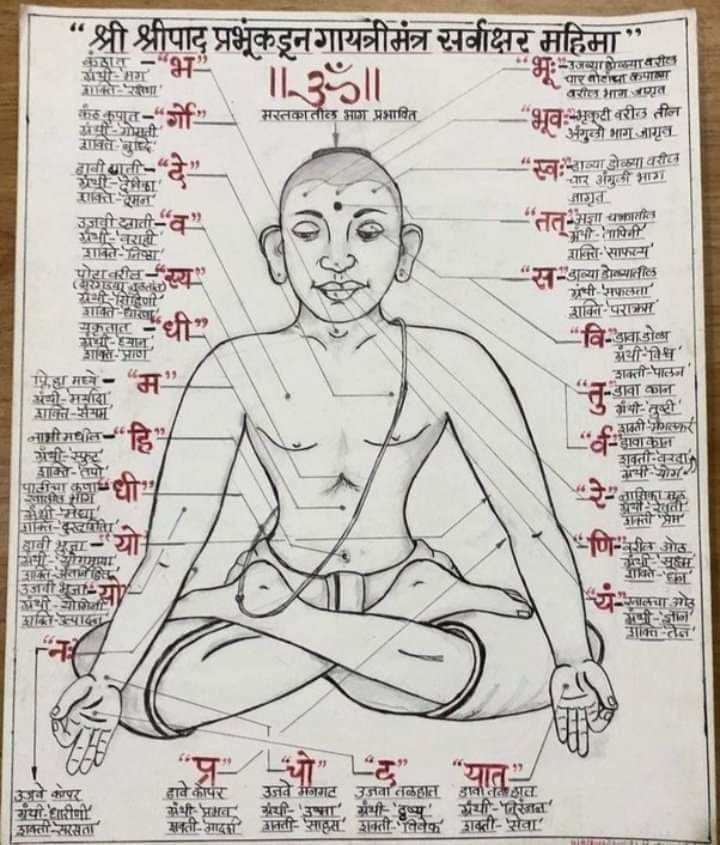 “ श्री श्रीपाद प्रभूंकडून गायत्रीमंत्र सर्वाक्षर महिमा ”
॥ॐ॥
मस्तकातील भाग प्रभावित
कंठात – “भ”
ग्रंथी – 'भग'
शक्ति – 'रक्षणा'
“र्गो”
ग्रंथी – 'गोमती'
शक्ति – 'बुद्धि'
डावी छाती – “दे”
ग्रंथी – 'देविका'
शक्ति – 'दमन'
उजवी छाती – “व”
ग्रंथी – 'वराही'
शक्ति – 'निष्ठा'
पोटावरील – “स्य”
ग्रंथी – 'सिंहिणी'
शक्ति – 'धारणा'
यकृतात – “धी”
ग्रंथी – 'ध्यान'
शक्ति – 'प्राण'
मध्ये – “म”
ग्रंथी – 'मर्यादा'
शक्ति – 'संयम'
नाभी मधील – “हि”
ग्रंथी – 'स्फुट'
शक्ति – 'तपो'
पाठीचा कणा – “धी”
ग्रंथी – 'मेधा'
शक्ति – 'दूरदर्शिता'
डावी भूजा – “यो”
ग्रंथी – 'योगमाया'
शक्ति – 'अंतर्निहित'
उजवी भूजा – “यो”
ग्रंथी – 'योगिनी'
शक्ति – 'उत्पादन'
“नः”
उजवे कोपर
ग्रंथी – 'धारीणी'
शक्ती – 'सरसता'
“भूः” – उजव्या डोळ्या वरील
चार बोटांचा कपाळा
वरील भाग जागृत
“भूवः” – भृकुटी वरील तीन
अंगुळी भाग जागृत
“स्वः” – डाव्या डोळ्या वरील
चार अंगुळी भाग
जागृत
“तत्” – आज्ञा चक्रातील
ग्रंथी – 'तापिनी'
शक्ति – 'साफल्य'
“स” – डाव्या डोळ्यातील
ग्रंथी – 'सफलता'
शक्ति – 'पराक्रम'
“वि” – डावा डोळा
ग्रंथी – 'विश्व'
शक्ती – 'पालन'
“तु” – डावा कान
ग्रंथी – 'तुष्टी'
शक्ती –
“र्व” – डावा कान
शक्ती – 'वरदा'
ग्रंथी – 'योग'
“रे” – नासिका मूळ
ग्रंथी – 'रेवती'
शक्ती – 'प्रेम'
“णि” – वरील ओठ
ग्रंथी – 'सूक्ष्म'
शक्ति – 'धन'
“यं” – खालचा ओठ
ग्रंथी – 'ज्ञान'
शक्ति – 'तेज'
“प्र”
डावे कोपर
ग्रंथी – 'प्रभव'
शक्ती – 'आदर्श'
“चो”
उजवे मनगट
ग्रंथी – 'उष्मा'
शक्ती – 'साहस'
“द”
उजवा तळहात
ग्रंथी – 'दृष्य'
शक्ती – 'विवेक'
“यात्”
डावा तळहात
ग्रंथी – 'निरंजन'
शक्ती – 'सेवा'